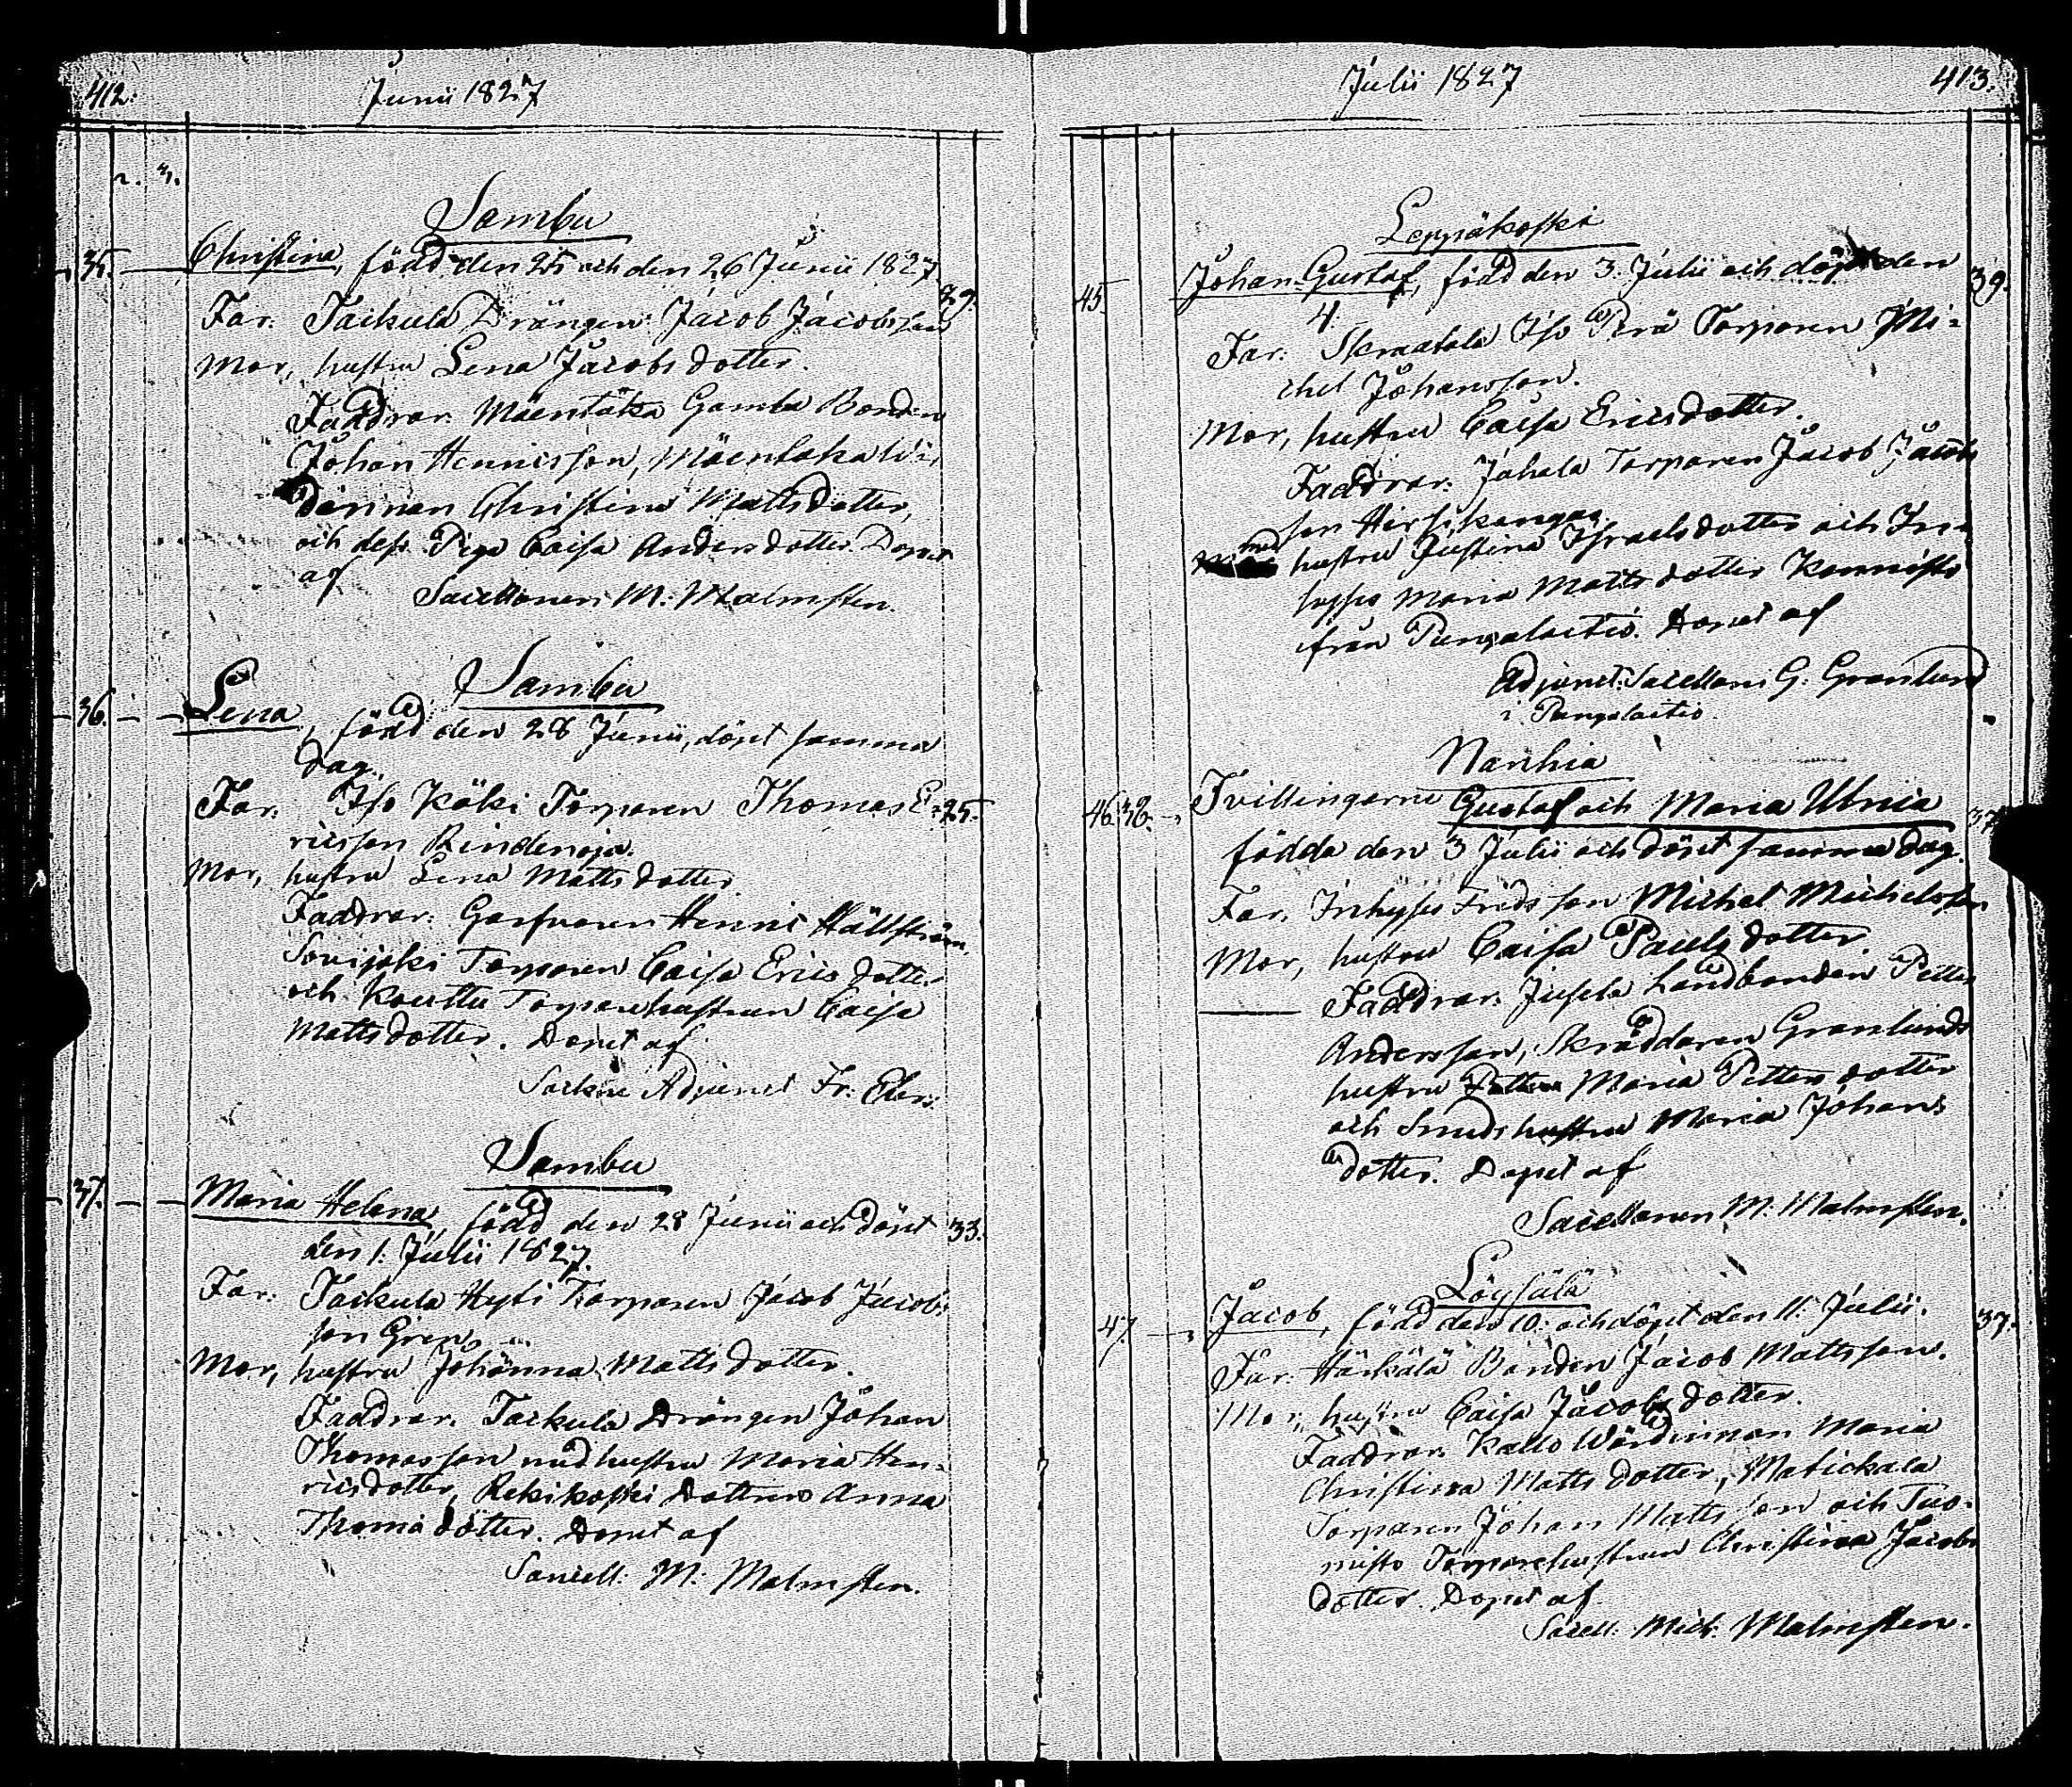 412.
Junii 1827
Sambu
35. Christina, född den 25 och den 26 Junii 1827
Far. Taikula Drängen Jacob Jacobsson 29.
Mor, hustru Lena Jacobs dotter.
Faddrar. Mäentaka Gamba Bonden
Johan Henricsson, Mäentaka Wär
dinnan Christina Mattsdotter,
och dess Piga Caisa Andersdotter. Döpt
af
Sacellanen M: Malmsten.
Sambu
36. Lena, född den 28 Junii, döpt samma
dag.
Far. Iso Käki Torparen Thomas E= 25.
ricsson Rindenoja.
Mor, hustru Lena Mattsdotter.
Faddrar: Henric Hällström,
Sovijoki Torparen Caisa Ericsdotter
och Kouttu Torparehustrun Caisa
Mattsdotter. Döpt af
Adjunct Fr:
Sambu
37. Maria Helena, född den 28 Junii och döpt 33.
den 1. Julii 1827.
Far: Taikula Hyti Torparen Jacob Jacobs
son Grén
Mor, hustru Johanna Mattsdotter.
Faddrar. Taikula Drängen Johan
Thomasson med hustru Maria Hen-
ricsdotter, Rekikoski Dottren Anna
Thomædotter. Döpt af
Sacell: M: Malmsten.
Julii 1827
413.
Leppäkoski
45. Johan Gustaf, född den 3. Julii och döpt den 39.
4.
Far: Skraatala Iso Perä Torparen Mi=
chel Johansson.
Mor, hustru Caisa Ericsdotter.
Faddrar. Jahala Torparen Jacob Jacobs
son Hirsikangas
med hustru Justina Israelsdotter och In-
hyses Maria Mattsdotter Kannisto
ifrån Pungalaitio. Döpt af
Adjunct: Sacellani G. Granlund
i Pungalaitio.
Narhia
46. 38. Tvillingarne Gustaf och Maria Ulrica 37
födda den 3 Julii och döpt samma dag.
Far. Inhyses Frids son Michel Michelsson
Mor, hustru Caisa Paulsdotter.
Faddrar. Jusela Landbonden Petter
Andersson, Skräddaren Granlunds
hustru Maria Pettersdotter
och Smedshustru Maria Johans
dotter. Döpt af
Sacellanen M: Malmsten.
Löysälä
47. Jacob, född den 10. och döpt den 11. Julii. 37.
Far. Härkälä Bonden Jacob Mattsson.
Mor, hustru Caisa Jacobsdotter.
Faddrar. Kallo Wärdinnan Maria
Christina Mattsdotter, Matickala
Torparen Johan Mattsson och Tuo-
misto Torparehustrun Christina Jacobs
dotter. Döpt af
Sacell: Mich: Malmsten.